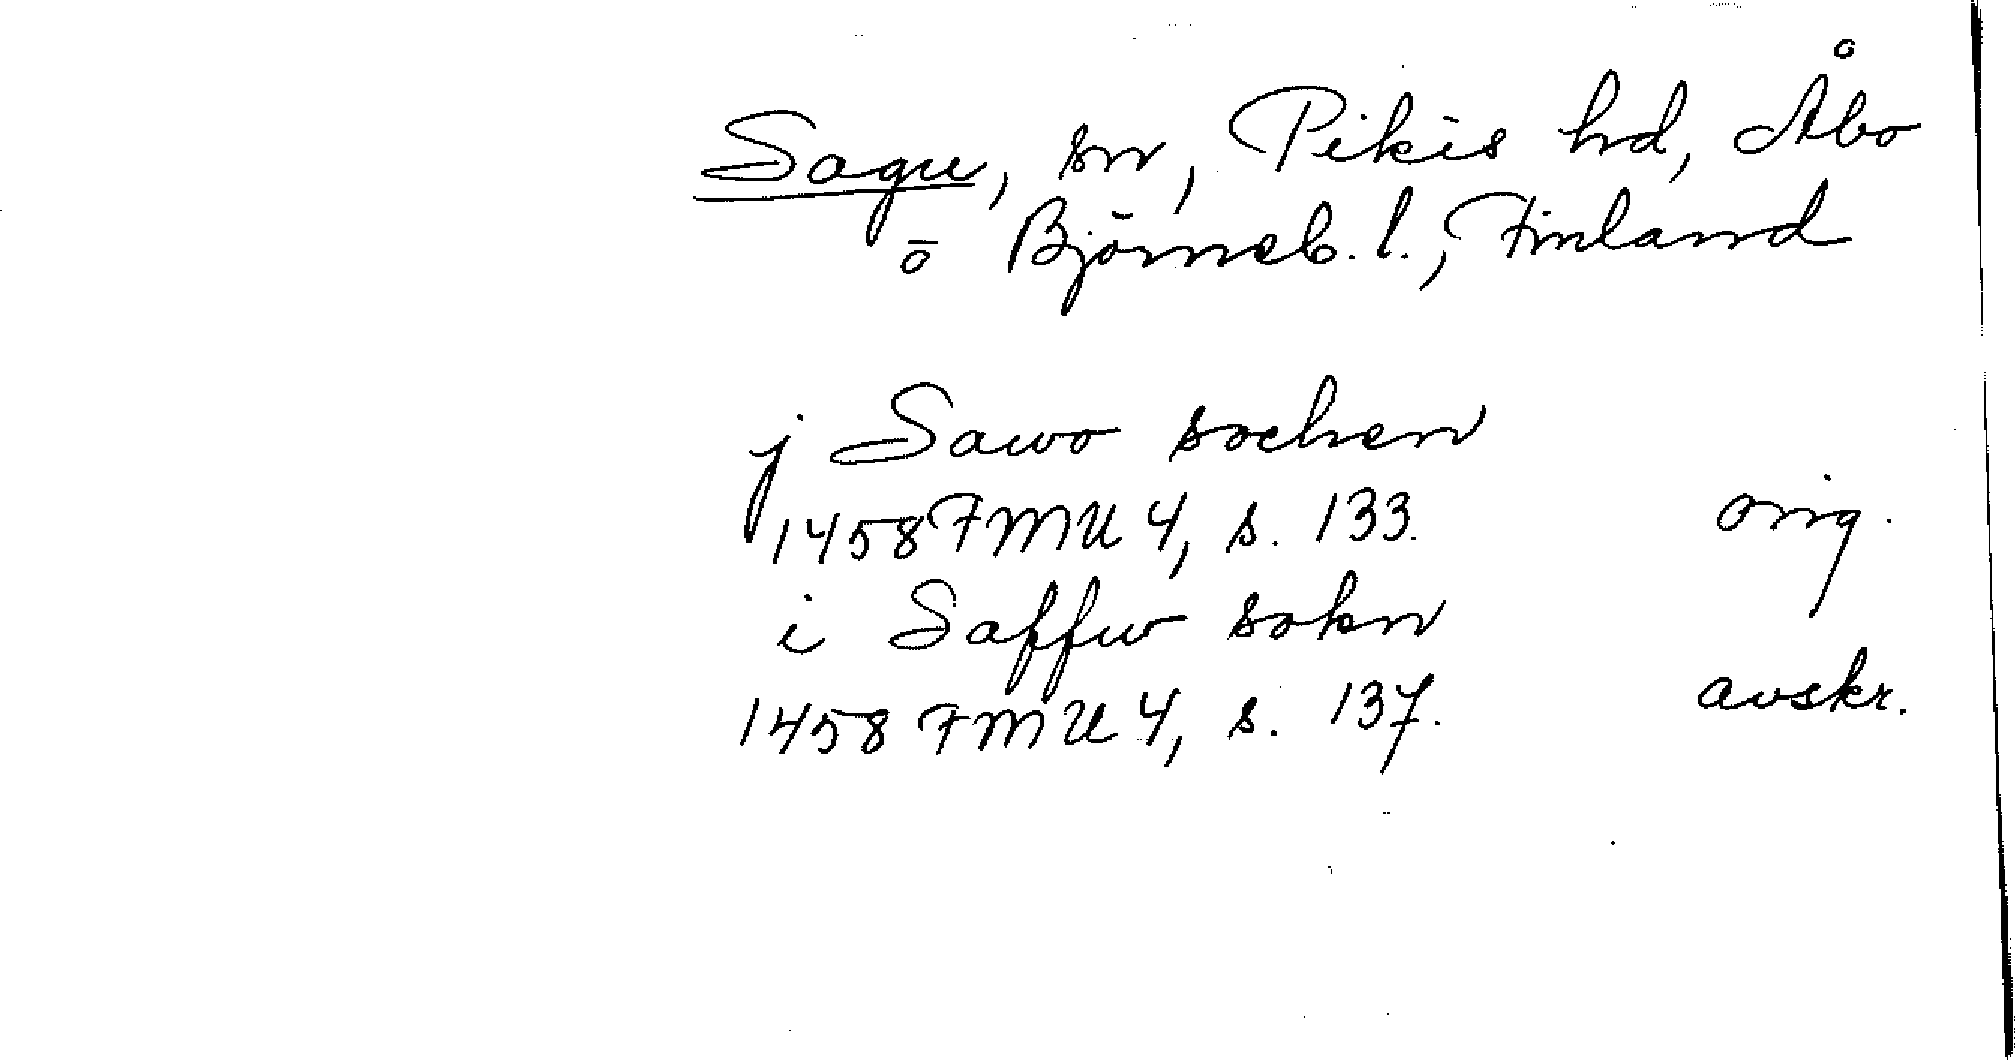 Sagu, sn, Pikis hd, Åbo
o Björneb. l., Finland
j Sawo sochen
1458 FMU 4, s. 133. orig.
i Saffw sokn
1458 FMU 4, s. 137. avskr.